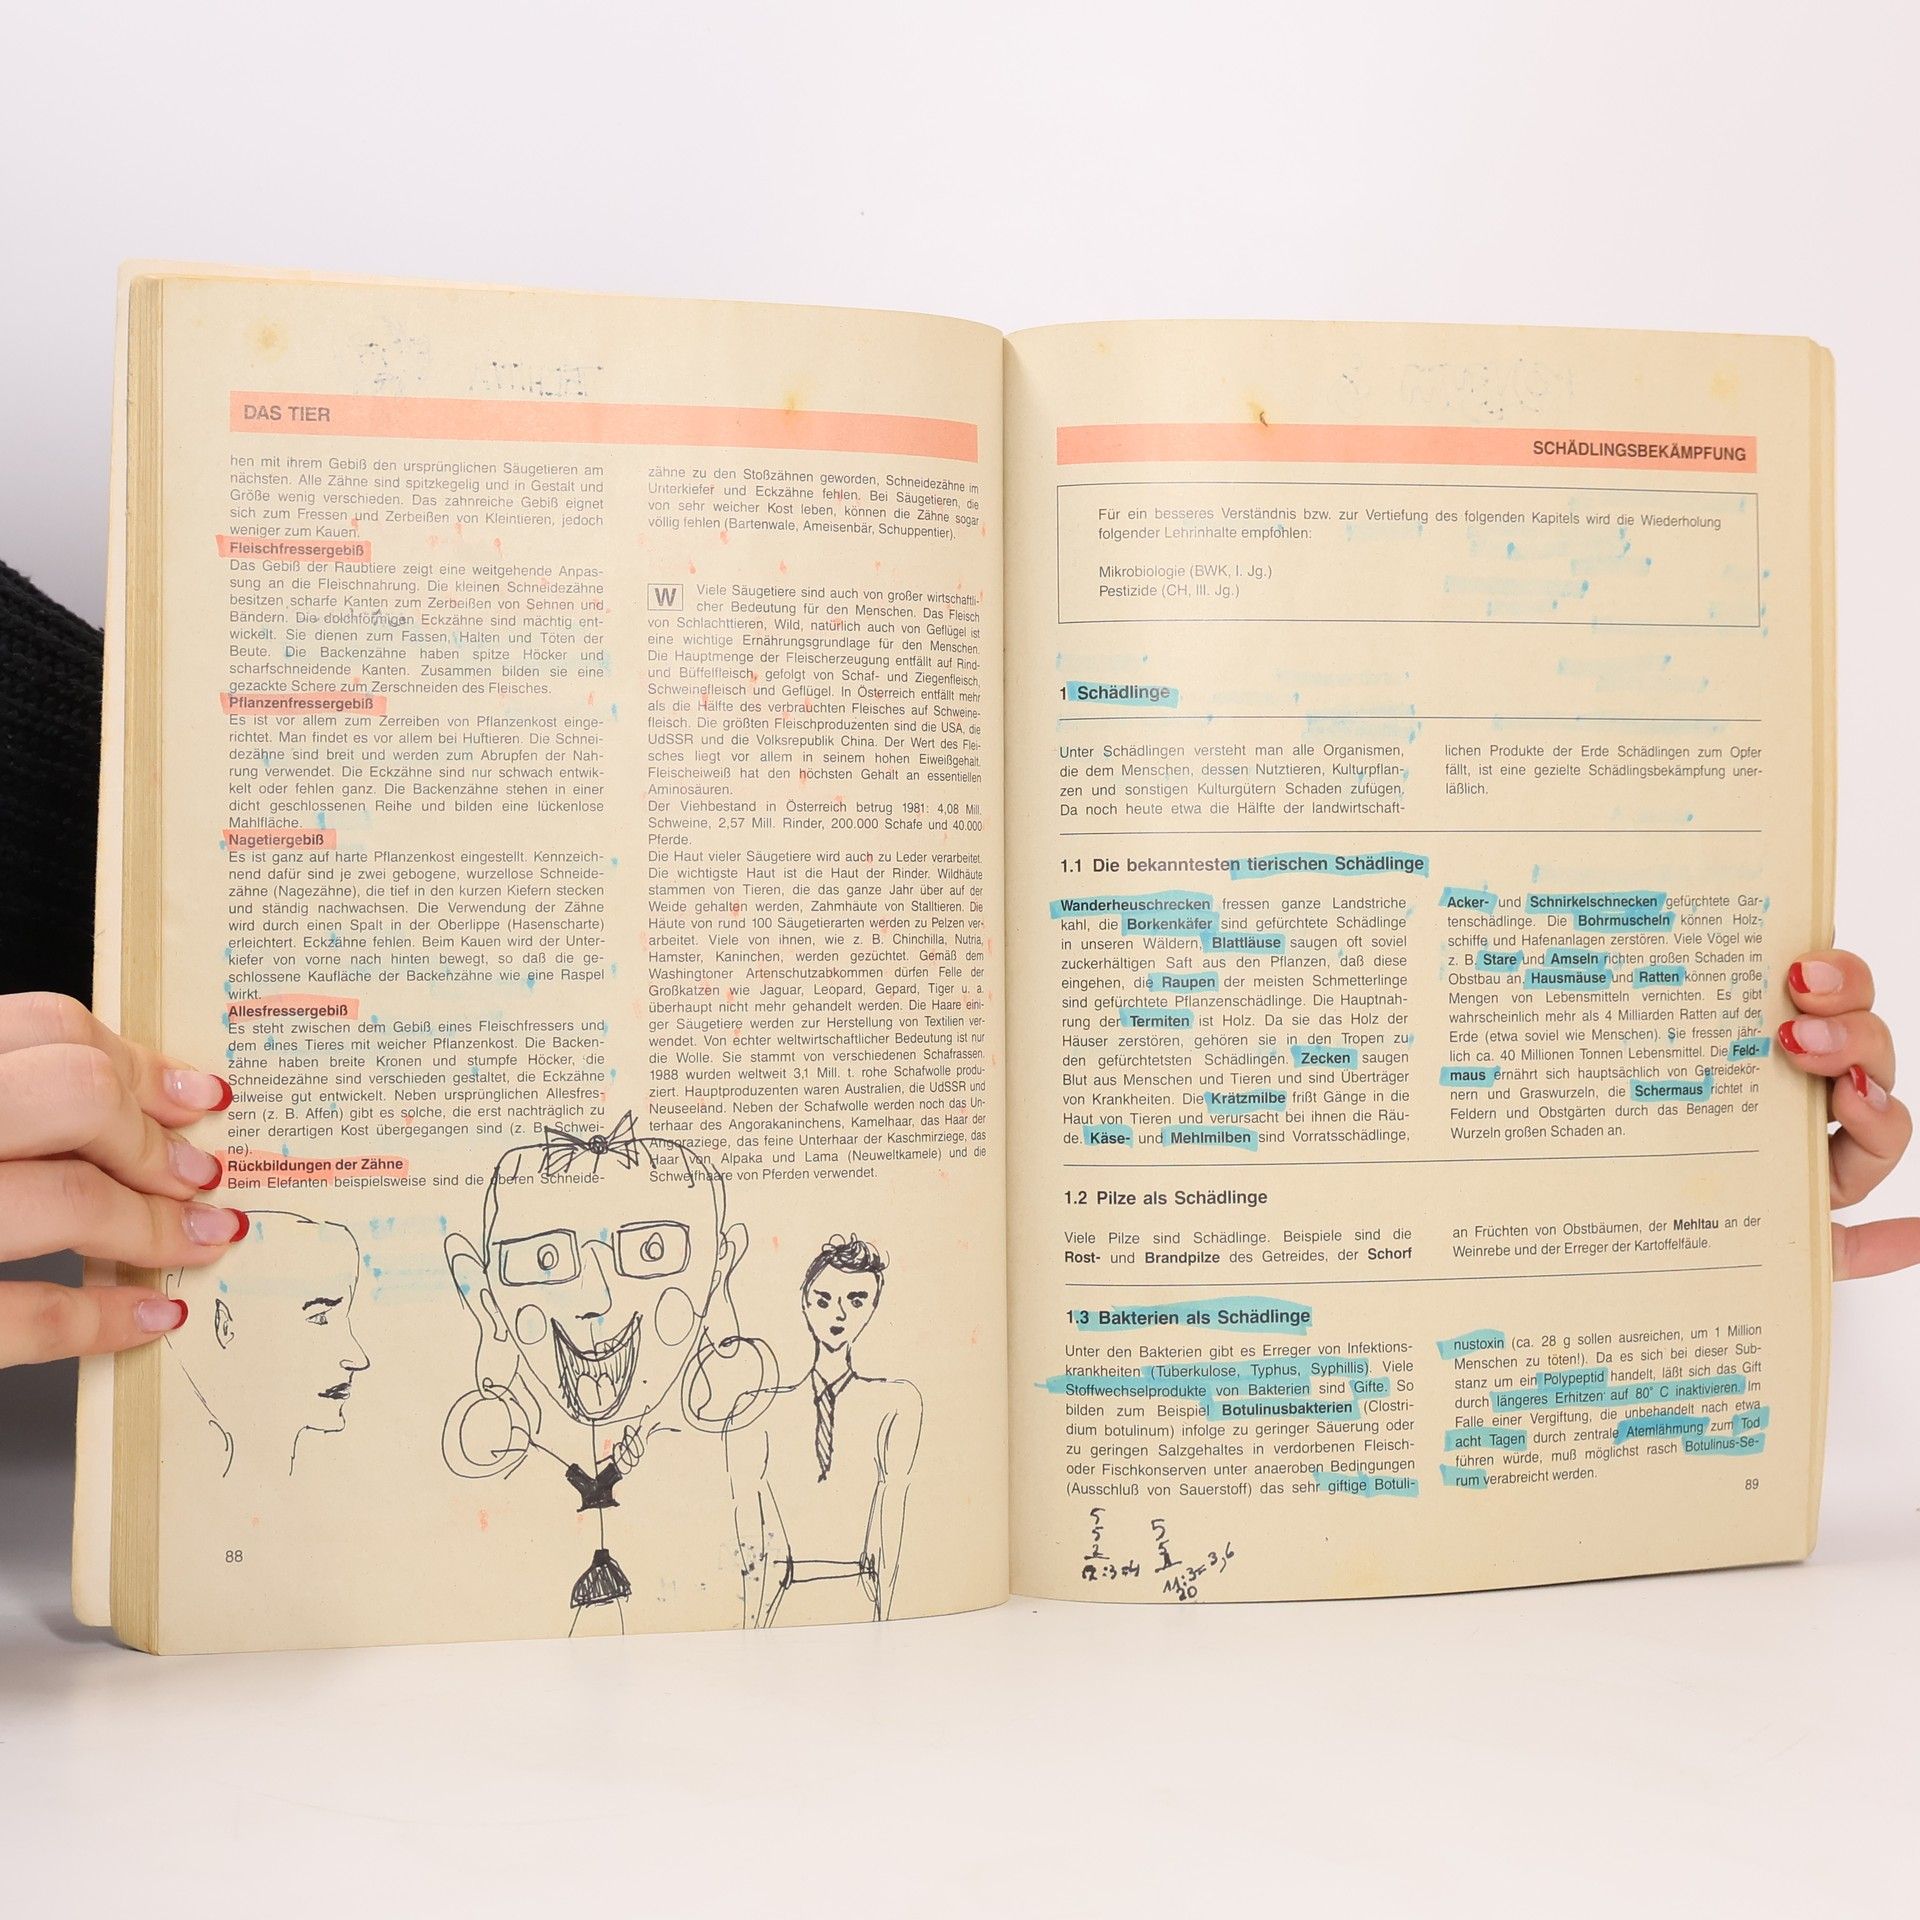 DAS TIER
hen mit ihrem Gebiß den ursprünglichen Säugetieren am
nächsten. Alle Zähne sind spitzkegelig und in Gestalt und
Größe wenig verschieden. Das zahnreiche Gebiß eignet
sich zum Fressen und Zerbeißen von Kleintieren, jedoch
weniger zum Kauen.
Fleischfressergebiß
Das Gebiß der Raubtiere zeigt eine weitgehende Anpas-
sung an die Fleischnahrung. Die kleinen Schneidezähne
besitzen scharfe Kanten zum Zerbeißen von Sehnen und
Bändern. Die dolchförmigen Eckzähne sind mächtig ent-
wickelt. Sie dienen zum Fassen, Halten und Töten der
Beute. Die Backenzähne haben spitze Höcker und
scharfschneidende Kanten. Zusammen bilden sie eine
gezackte Schere zum Zerschneiden des Fleisches.
Pflanzenfressergebiß
Es ist vor allem zum Zerreiben von Pflanzenkost einge-
richtet. Man findet es vor allem bei Huftieren. Die Schnei-
dezähne sind breit und werden zum Abrupfen der Nah-
rung verwendet. Die Eckzähne sind nur schwach entwik-
kelt oder fehlen ganz. Die Backenzähne stehen in einer
dicht geschlossenen Reihe und bilden eine lückenlose
Mahlfläche.
Nagetiergebiß
Es ist ganz auf harte Pflanzenkost eingestellt. Kennzeich-
nend dafür sind je zwei gebogene, wurzellose Schneide-
zähne (Nagezähne), die tief in den kurzen Kiefern stecken
und ständig nachwachsen. Die Verwendung der Zähne
wird durch einen Spalt in der Oberlippe (Hasenscharte)
erleichtert. Eckzähne fehlen. Beim Kauen wird der Unter-
kiefer von vorne nach hinten bewegt, so daß die ge-
schlossene Kaufläche der Backenzähne wie eine Raspel
wirkt.
Allesfressergebiß
Es steht zwischen dem Gebiß eines Fleischfressers und
dem eines Tieres mit weicher Pflanzenkost. Die Backen-
zähne haben breite Kronen und stumpfe Höcker, die
Schneidezähne sind verschieden gestaltet, die Eckzähne
teilweise gut entwickelt. Neben ursprünglichen Allesfres-
sern (z. B. Affen) gibt es solche, die erst nachträglich zu
einer derartigen Kost übergegangen sind (z. B. Schwei-
ne).
Rückbildungen der Zähne
Beim Elefanten beispielsweise sind die oberen Schneide-
zähne zu den Stoßzähnen geworden, Schneidezähne im
Unterkiefer und Eckzähne fehlen. Bei Säugetieren, die
von sehr weicher Kost leben, können die Zähne sogar
völlig fehlen (Bartenwale, Ameisenbär, Schuppentier).
W Viele Säugetiere sind auch von großer wirtschaftli-
cher Bedeutung für den Menschen. Das Fleisch
von Schlachttieren, Wild, natürlich auch von Geflügel ist
eine wichtige Ernährungsgrundlage für den Menschen.
Die Hauptmenge der Fleischerzeugung entfällt auf Rind-
und Büffelfleisch, gefolgt von Schaf- und Ziegenfleisch,
Schweinefleisch und Geflügel. In Österreich entfällt mehr
als die Hälfte des verbrauchten Fleisches auf Schweine-
fleisch. Die größten Fleischproduzenten sind die USA, die
UdSSR und die Volksrepublik China. Der Wert des Flei-
sches liegt vor allem in seinem hohen Eiweißgehalt.
Fleischeiweiß hat den höchsten Gehalt an essentiellen
Aminosäuren.
Der Viehbestand in Österreich betrug 1981: 4,08 Mill.
Schweine, 2,57 Mill. Rinder, 200.000 Schafe und 40.000
Pferde.
Die Haut vieler Säugetiere wird auch zu Leder verarbeitet.
Die wichtigste Haut ist die Haut der Rinder. Wildhäute
stammen von Tieren, die das ganze Jahr über auf der
Weide gehalten werden, Zahmhäute von Stalltieren. Die
Häute von rund 100 Säugetierarten werden zu Pelzen ver-
arbeitet. Viele von ihnen, wie z. B. Chinchilla, Nutria,
Hamster, Kaninchen, werden gezüchtet. Gemäß dem
Washingtoner Artenschutzabkommen dürfen Felle der
Großkatzen wie Jaguar, Leopard, Gepard, Tiger u. a.
überhaupt nicht mehr gehandelt werden. Die Haare eini-
ger Säugetiere werden zur Herstellung von Textilien ver-
wendet. Von echter weltwirtschaftlicher Bedeutung ist nur
die Wolle. Sie stammt von verschiedenen Schafrassen.
1988 wurden weltweit 3,1 Mill. t. rohe Schafwolle produ-
ziert. Hauptproduzenten waren Australien, die UdSSR und
Neuseeland. Neben der Schafwolle werden noch das Un-
terhaar des Angorakaninchens, Kamelhaar, das Haar der
Angoraziege, das feine Unterhaar der Kaschmirziege, das
Haar von Alpaka und Lama (Neuweltkamele) und die
Schweifhaare von Pferden verwendet.
88
SCHÄDLINGSBEKÄMPFUNG
Für ein besseres Verständnis bzw. zur Vertiefung des folgenden Kapitels wird die Wiederholung
folgender Lehrinhalte empfohlen:
Mikrobiologie (BWK, I. Jg.)
Pestizide (CH, III. Jg.)
1 Schädlinge
Unter Schädlingen versteht man alle Organismen,
die dem Menschen, dessen Nutztieren, Kulturpflan-
zen und sonstigen Kulturgütern Schaden zufügen.
Da noch heute etwa die Hälfte der landwirtschaft-
lichen Produkte der Erde Schädlingen zum Opfer
fällt, ist eine gezielte Schädlingsbekämpfung uner-
läßlich.
1.1 Die bekanntesten tierischen Schädlinge
Wanderheuschrecken fressen ganze Landstriche
kahl, die Borkenkäfer sind gefürchtete Schädlinge
in unseren Wäldern, Blattläuse saugen oft soviel
zuckerhältigen Saft aus den Pflanzen, daß diese
eingehen, die Raupen der meisten Schmetterlinge
sind gefürchtete Pflanzenschädlinge. Die Hauptnah-
rung der Termiten ist Holz. Da sie das Holz der
Häuser zerstören, gehören sie in den Tropen zu
den gefürchtetsten Schädlingen. Zecken saugen
Blut aus Menschen und Tieren und sind Überträger
von Krankheiten. Die Krätzmilbe frißt Gänge in die
Haut von Tieren und verursacht bei ihnen die Räu-
de. Käse- und Mehlmilben sind Vorratsschädlinge,
Acker- und Schnirkelschnecken gefürchtete Gar-
tenschädlinge. Die Bohrmuscheln können Holz-
schiffe und Hafenanlagen zerstören. Viele Vögel wie
z. B. Stare und Amseln richten großen Schaden im
Obstbau an. Hausmäuse und Ratten können große
Mengen von Lebensmitteln vernichten. Es gibt
wahrscheinlich mehr als 4 Milliarden Ratten auf der
Erde (etwa soviel wie Menschen). Sie fressen jähr-
lich ca. 40 Millionen Tonnen Lebensmittel. Die Feld-
maus ernährt sich hauptsächlich von Getreidekör-
nern und Graswurzeln, die Schermaus richtet in
Feldern und Obstgärten durch das Benagen der
Wurzeln großen Schaden an.
1.2 Pilze als Schädlinge
Viele Pilze sind Schädlinge. Beispiele sind die
Rost- und Brandpilze des Getreides, der Schorf
an Früchten von Obstbäumen, der Mehltau an der
Weinrebe und der Erreger der Kartoffelfäule.
1.3 Bakterien als Schädlinge
Unter den Bakterien gibt es Erreger von Infektions-
krankheiten (Tuberkulose, Typhus, Syphillis). Viele
Stoffwechselprodukte von Bakterien sind Gifte. So
bilden zum Beispiel Botulinusbakterien (Clostri-
dium botulinum) infolge zu geringer Säuerung oder
zu geringen Salzgehaltes in verdorbenen Fleisch-
oder Fischkonserven unter anaeroben Bedingungen
(Ausschluß von Sauerstoff) das sehr giftige Botuli-
nustoxin (ca. 28 g sollen ausreichen, um 1 Million
Menschen zu töten!). Da es sich bei dieser Sub-
stanz um ein Polypeptid handelt, läßt sich das Gift
durch längeres Erhitzen auf 80° C inaktivieren. Im
Falle einer Vergiftung, die unbehandelt nach etwa
acht Tagen durch zentrale Atemlähmung zum Tod
führen würde, muß möglichst rasch Botulinus-Se-
rum verabreicht werden.
89
5
5
2
12:3=4
5
5
1
11:3=3,6
20